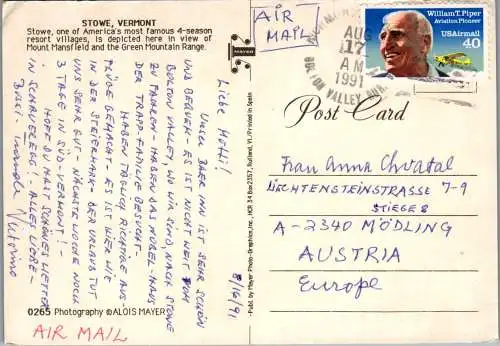 STOWE, VERMONT
Stowe, one of America's most famous 4-season
resort villages, is depicted here in view of
Mount Mansfield and the Green Mountain Range.
Liebe Hethi!
UNSER BAER INN IST SEHR SCHÖN
UND BEQUEM - ES IST NICHT WEIT VOM
BOLTON VALLEY, WO WIR SIND, NACH STOWE
ZU FAHREN - HABEN DAS NOBEL-HAUS
DER TRAPP-FAMILIE BESUCHT -
HABEN TÄGLICH RICHTIGE AUS-
FLÜGE GEMACHT - ES IST HIER WIE
IN DER STEIERMARK - DER URLAUB TUT
UNS SEHR GUT - NÄCHSTE WOCHE NOCH
3 TAGE IN SÜD-VERMONT! -
HOFF DU HAST SCHÖNES WETTER
IN ALLES LIEBE -
Bussi -
8/16/91
0265 Photography © ALOIS MAYER
AIR MAIL
MAYER
Publ. by Mayer Photo-Graphics, Inc., HCR 34 Box 2357, Rutland, Vt./Printed in Spain
AIR
MAIL
AUG
17
AM
1991
BOLTON VALLEY
William T. Piper
Aviation Pioneer
USAirmail
40
Post Card
Frau Anna Chvatal
LIECHTENSTEINSTRASSE 7-9
STIEGE 8
A-2340 MÖDLING
AUSTRIA
Europe